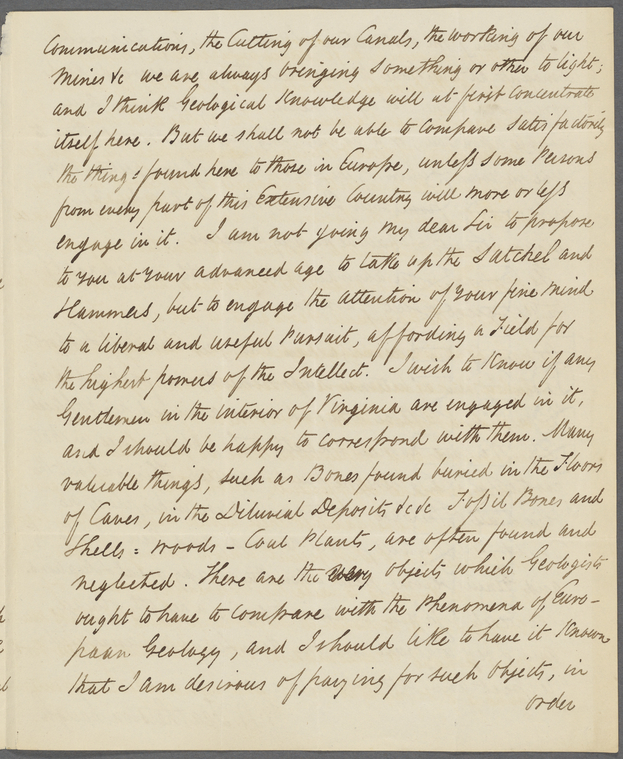 Communications, the Cutting of our Canals, the working of our
Mines &c we are always bringing something or other to light;
and I think Geological Knowledge will at first concentrate
itself here. But we shall not be able to compare satisfactorily
the things found here to those in Europe, unless some Persons
from every part of this Extensive Country will more or less
engage in it. I am not going my dear Sir to propose
to you at your advanced age to take up the Satchel and
Hammers, but to engage the attention of your fine mind
to a liberal and useful Pursuit, affording a Field for
the highest powers of the Intellect. I wish to Know if any
Gentlemen in the interior of Virginia are engaged in it,
and I should be happy to correspond with them. Many
valuable things, such as Bones found buried in the Floors
of Caves, in the Diluvial Deposits &c &c Fossil Bones and
Shells = woods - Coal Plants, are often found and
neglected. These are the very objects which Geologists
ought to have to compare with the Phenomena of Euro-
paan Geology, and I should like to have it Known
that I am desirous of paying for such Objects, in
order